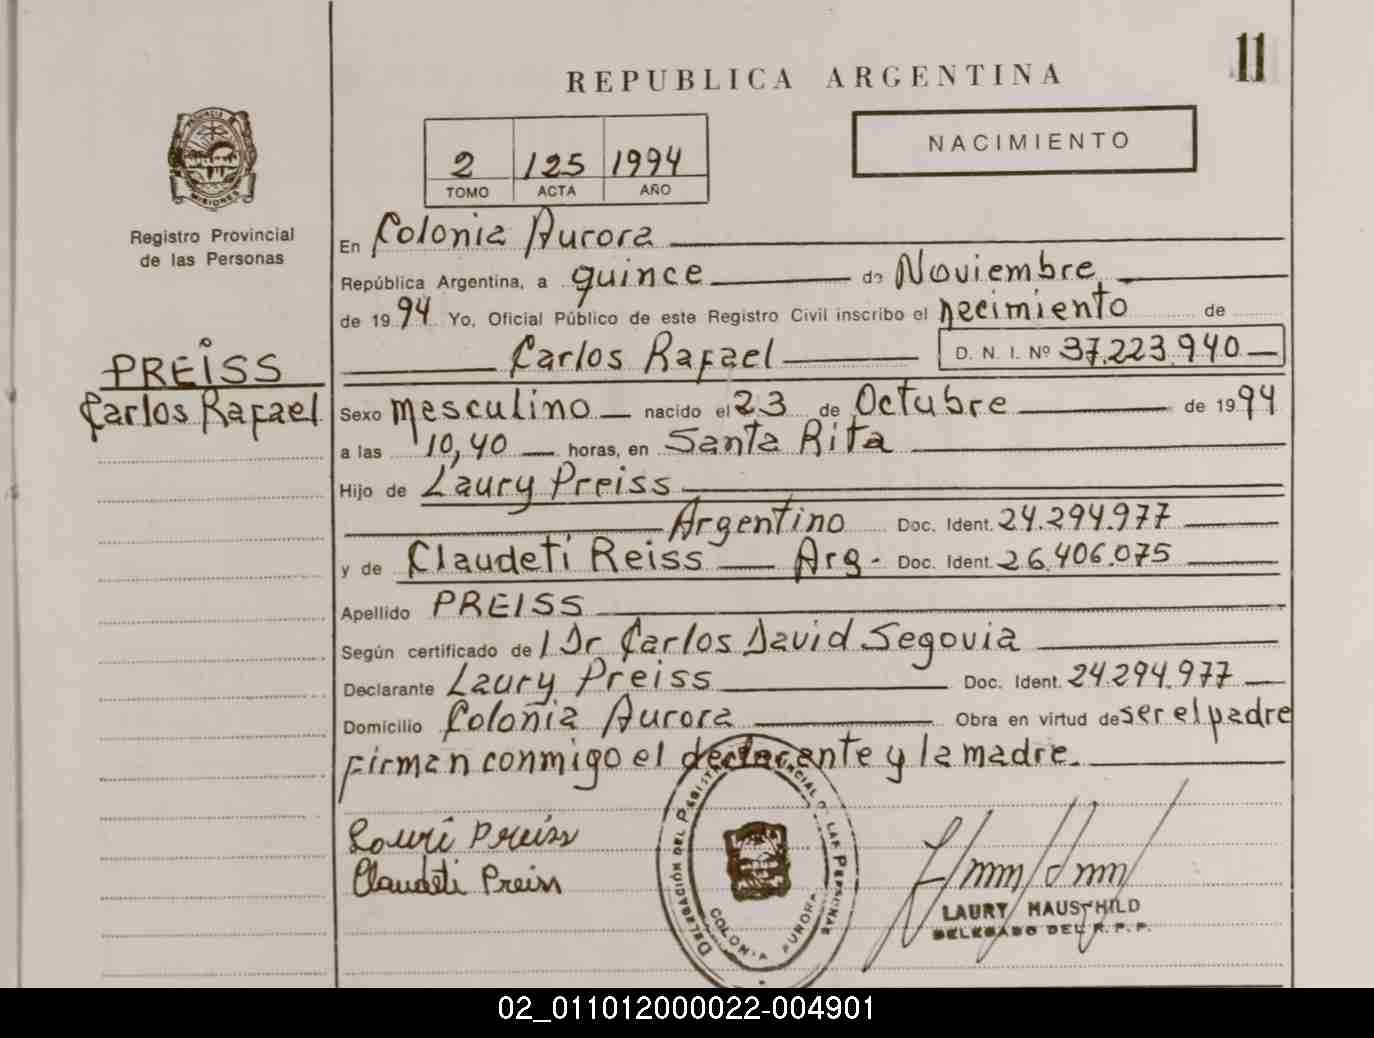 11
REPUBLICA ARGENTINA
NACIMIENTO
2 125 1994
TOMO ACTA AÑO
PROVINCIA DE
MISIONES
Registro Provincial
de las Personas
PREISS
Carlos Rafael
En Colonia Aurora
República Argentina, a quince de Noviembre
de 1994 Yo, Oficial Público de este Registro Civil inscribo el nacimiento de
Carlos Rafael D. N. I. Nº 37.223.940
Sexo masculino nacido el 23 de Octubre de 1994
a las 10,40 horas, en Santa Rita
Hijo de Laury Preiss
Argentino Doc. Ident. 24.294.977
y de Claudeti Reiss Arg. Doc. Ident. 26.406.075
Apellido PREISS
Según certificado de / Dr Carlos David Segovia
Declarante Laury Preiss Doc. Ident. 24.294.977
Domicilio Colonia Aurora Obra en virtud de ser el padre
firman conmigo el declarante y la madre.
Lauri Preiss
Claudeti Preiss
DELEGACIÓN DEL REGISTRO PROVINCIAL DE LAS PERSONAS
COLONIA AURORA
LAURY HAUSCHILD
DELEGADO DEL R.P.P.
02_011012000022-004901